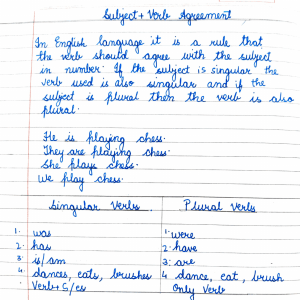 Subject + Verb Agreement
In English language it is a rule that
the verb should agree with the subject
in number. If the subject is singular the
verb used is also singular and if the
subject is plural then the verb is also
plural.
He is playing chess.
They are playing chess.
She plays chess.
We play chess.
Singular Verbs Plural Verbs
1. was 1. were
2. has 2. have
3. is/am 3. are
4. dances, eats, brushes 4. dance, eat, brush
Verb + s/es Only Verb